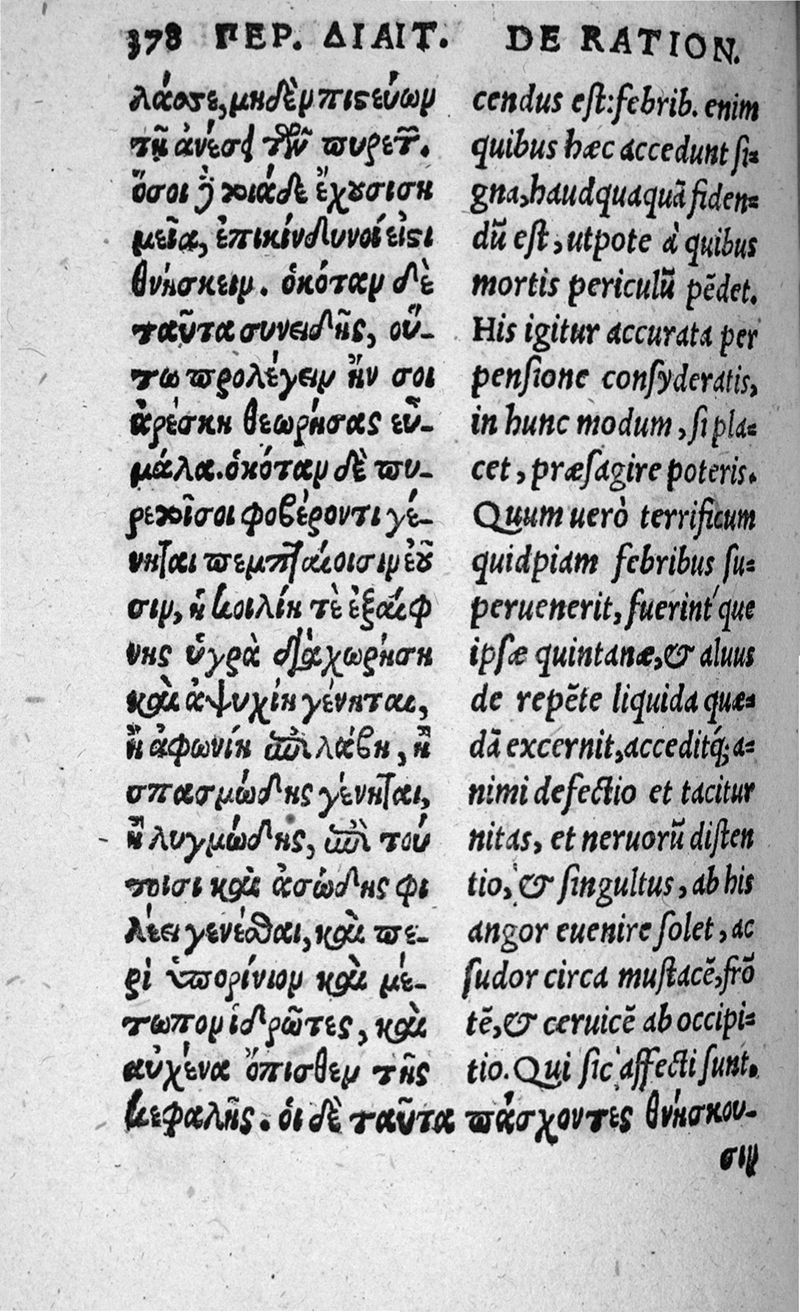 378 ΠΕΡ. ΔΙΑΙΤ.
λάσσε, μηδὲν πιςεύων
τῇ ἀνέσι τῶν πυρετ.
ὅσοι ἢ τοιάδε ἔχουσι ση
μεῖα, ἐπικίνδυνοί εἰσι
θνήσκειν. ὁκόταν δὲ
ταῦτα συνειδῇς, οὕ-
τω προλέγειν ἤν σοι
ἀρέσκη θεωρήσας εὖ-
μάλα. ὁκόταν δὲ πυ-
ρετοῖσοι φοβέροντι γέ-
νηται πεμπταίοισιν ἐοῦ
σιν, ἡ κοιλίη τὲ ἐξαίφ
νης ὑγρὰ διαχωρήση
καὶ ἀψυχίη γένηται,
ἢ ἀφωνίη ἐπιλάβη, ἢ
σπασμώδης γένηται,
ἢ λυγμώδης, ἐπὶ τού
τοισι καὶ ἀσώδης φι
λέει γενέσθαι, καὶ πε-
ρὶ ὑπορίνιον καὶ μέ-
τωπον ἱδρῶτες, καὶ
αὐχένα ὄπισθεν τῆς
κεφαλῆς. οἱ δὲ ταῦτα πάσχοντες θνήσκου-
σιν
DE RATION.
cendus est: febrib. enim
quibus hæc accedunt si-
gna, haudquaquã fiden-
dũ est, utpote à quibus
mortis periculũ pẽdet.
His igitur accurata per
pensione consyderatis,
in hunc modum, si pla-
cet, præsagire poteris.
Quum uerò terrificum
quidpiam febribus su-
peruenerit, fuerint que
ipsæ quintanæ, & aluus
de repẽte liquida quæ-
dã excernit, acceditq́; a-
nimi defectio et tacitur
nitas, et neruorũ disten
tio, & singultus, ab his
angor euenire solet, ac
sudor circa mustacẽ, frõ
tẽ, & ceruicẽ ab occipi-
tio. Qui sic affecti sunt.